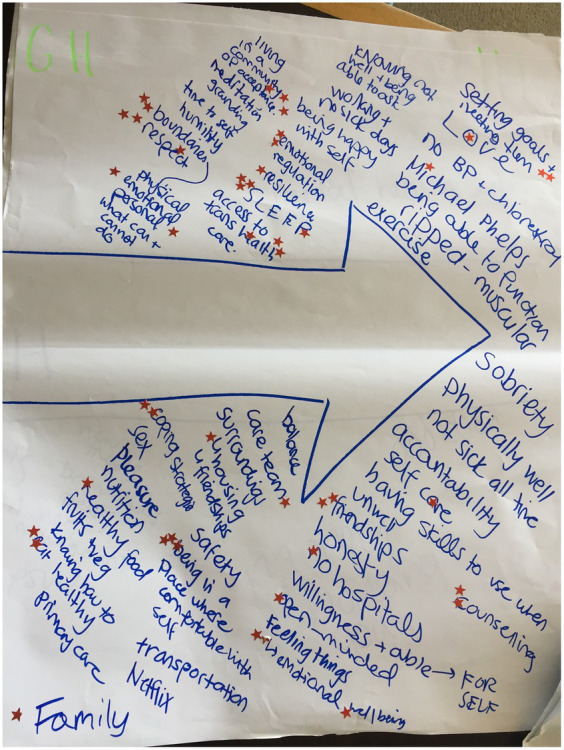 G11
living
in a
community
of acceptance
meditation
grounding
time 4 self
humility
boundaries
respect
physical
emotional
personal
what can +
cannot
do
knowing not
well + being
able to ask
working +
no sick days
being happy
with self
emotional
regulation
resilience
SLEEP
access to
trans health
care
setting goals +
meeting them
Love
no BP + chlorestrol
Michael Phelps
being able to function
ripped - muscular
exercise
sobriety
physically well
not sick all time
accountability
self care
having skills to use when
unwell
counselling
friendships
honesty
no hospitals
willingness + able → FOR
SELF
open-minded
Feeling things
emotional
wellbeing
balance
care team
surroundings
housing
friendships
coping strategies
sex
pleasure
nutrition
healthy food
fruits + veg
knowing how to
eat healthy
primary care
safety
being in a
place where
comfortable with
self
transportation
Netflix
Family